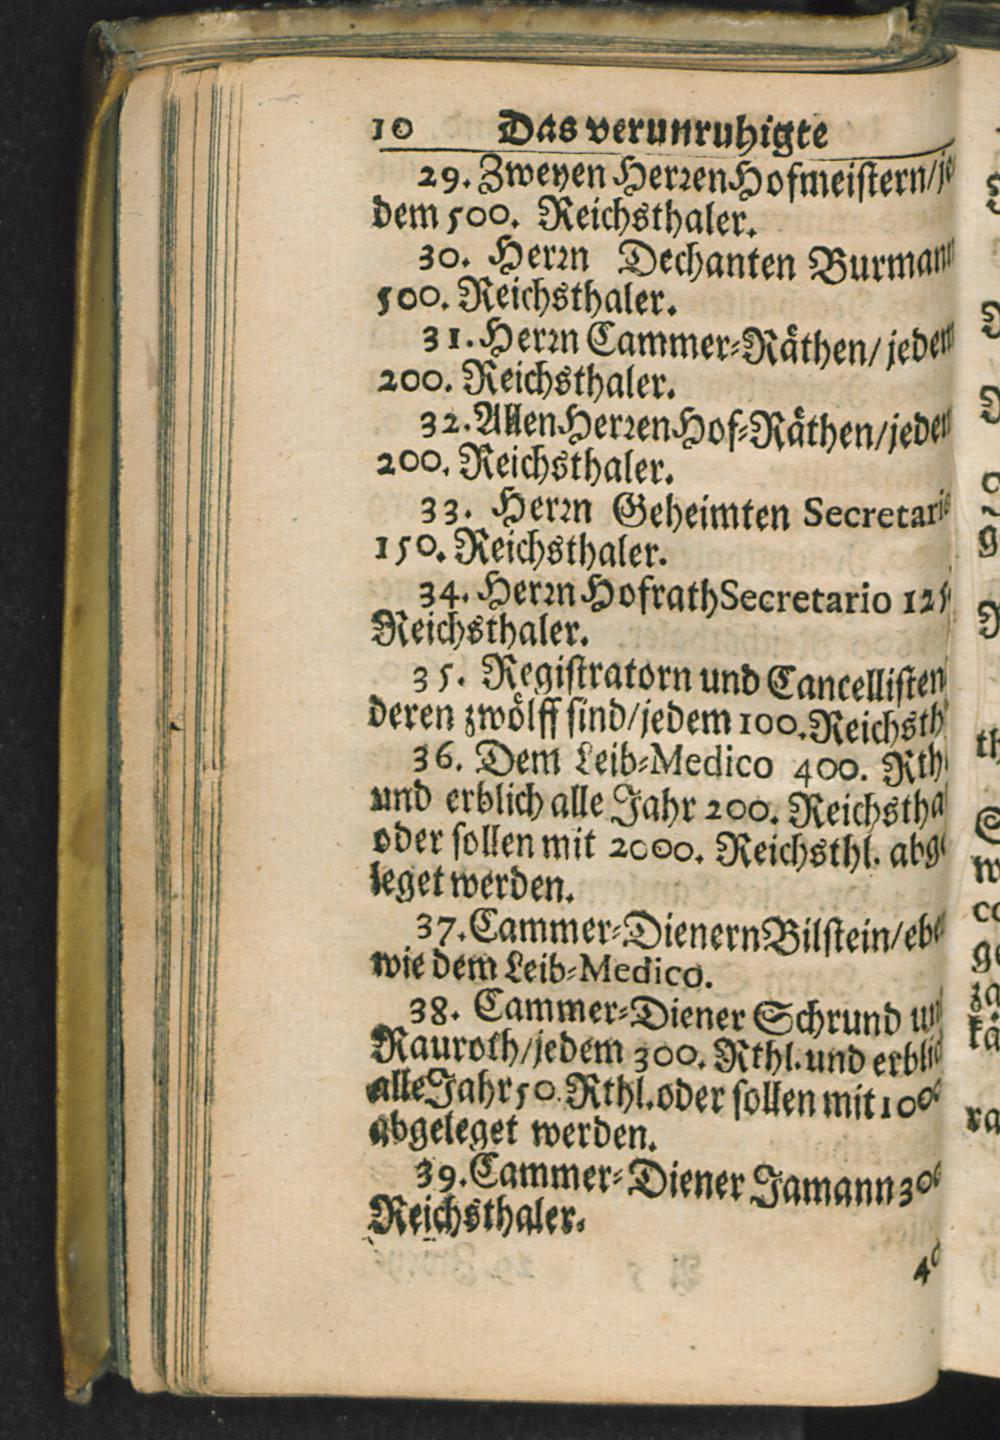 10 Das verunruhigte
29. Zweyen Herren Hofmeistern/je
dem 500. Reichsthaler.
30. Herrn Dechanten Burmann
500. Reichsthaler.
31. Herrn Cammer-Räthen/jedem
200. Reichsthaler.
32. Allen Herren Hof-Räthen/jedem
200. Reichsthaler.
33. Herrn Geheimten Secretario
150. Reichsthaler.
34. Herrn Hofrath Secretario 125.
Reichsthaler.
35. Registratorn und Cancellisten
deren zwölff sind/jedem 100. Reichsth
36. Dem Leib-Medico 400. Rthl
und erblich alle Jahr 200. Reichstha
oder sollen mit 2000. Reichsthl. abge
leget werden.
37. Cammer-Dienern Bilstein/eben
wie dem Leib-Medico.
38. Cammer-Diener Schrund und
Rauroth/jedem 300. Rthl. und erblich
alle Jahr 50. Rthl. oder sollen mit 1000
abgeleget werden.
39. Cammer-Diener Jamann 300
Reichsthaler.
40